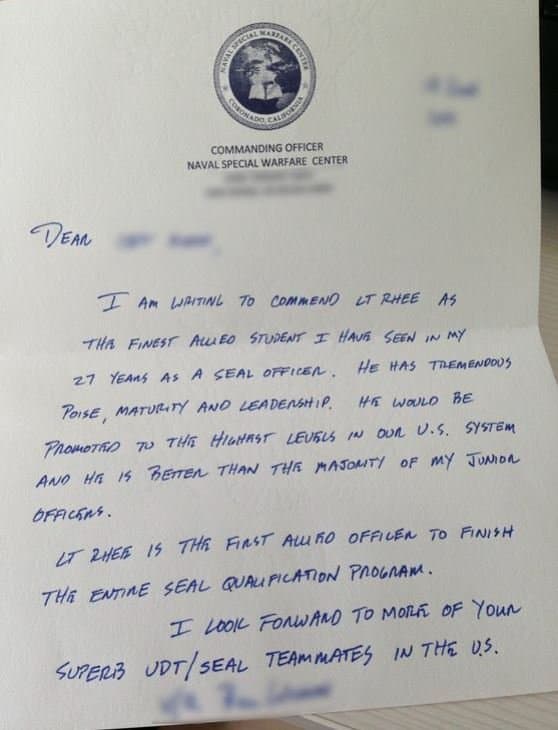 NAVAL SPECIAL WARFARE CENTER
CORONADO, CALIFORNIA
COMMANDING OFFICER
NAVAL SPECIAL WARFARE CENTER
DEAR
I AM WRITING TO COMMEND LT RHEE AS
THE FINEST ALLIED STUDENT I HAVE SEEN IN MY
27 YEARS AS A SEAL OFFICER. HE HAS TREMENDOUS
POISE, MATURITY AND LEADERSHIP. HE WOULD BE
PROMOTED TO THE HIGHEST LEVELS IN OUR U.S. SYSTEM
AND HE IS BETTER THAN THE MAJORITY OF MY JUNIOR
OFFICERS.
LT RHEE IS THE FIRST ALLIED OFFICER TO FINISH
THE ENTIRE SEAL QUALIFICATION PROGRAM.
I LOOK FORWARD TO MORE OF YOUR
SUPERB UDT/SEAL TEAMMATES IN THE U.S.